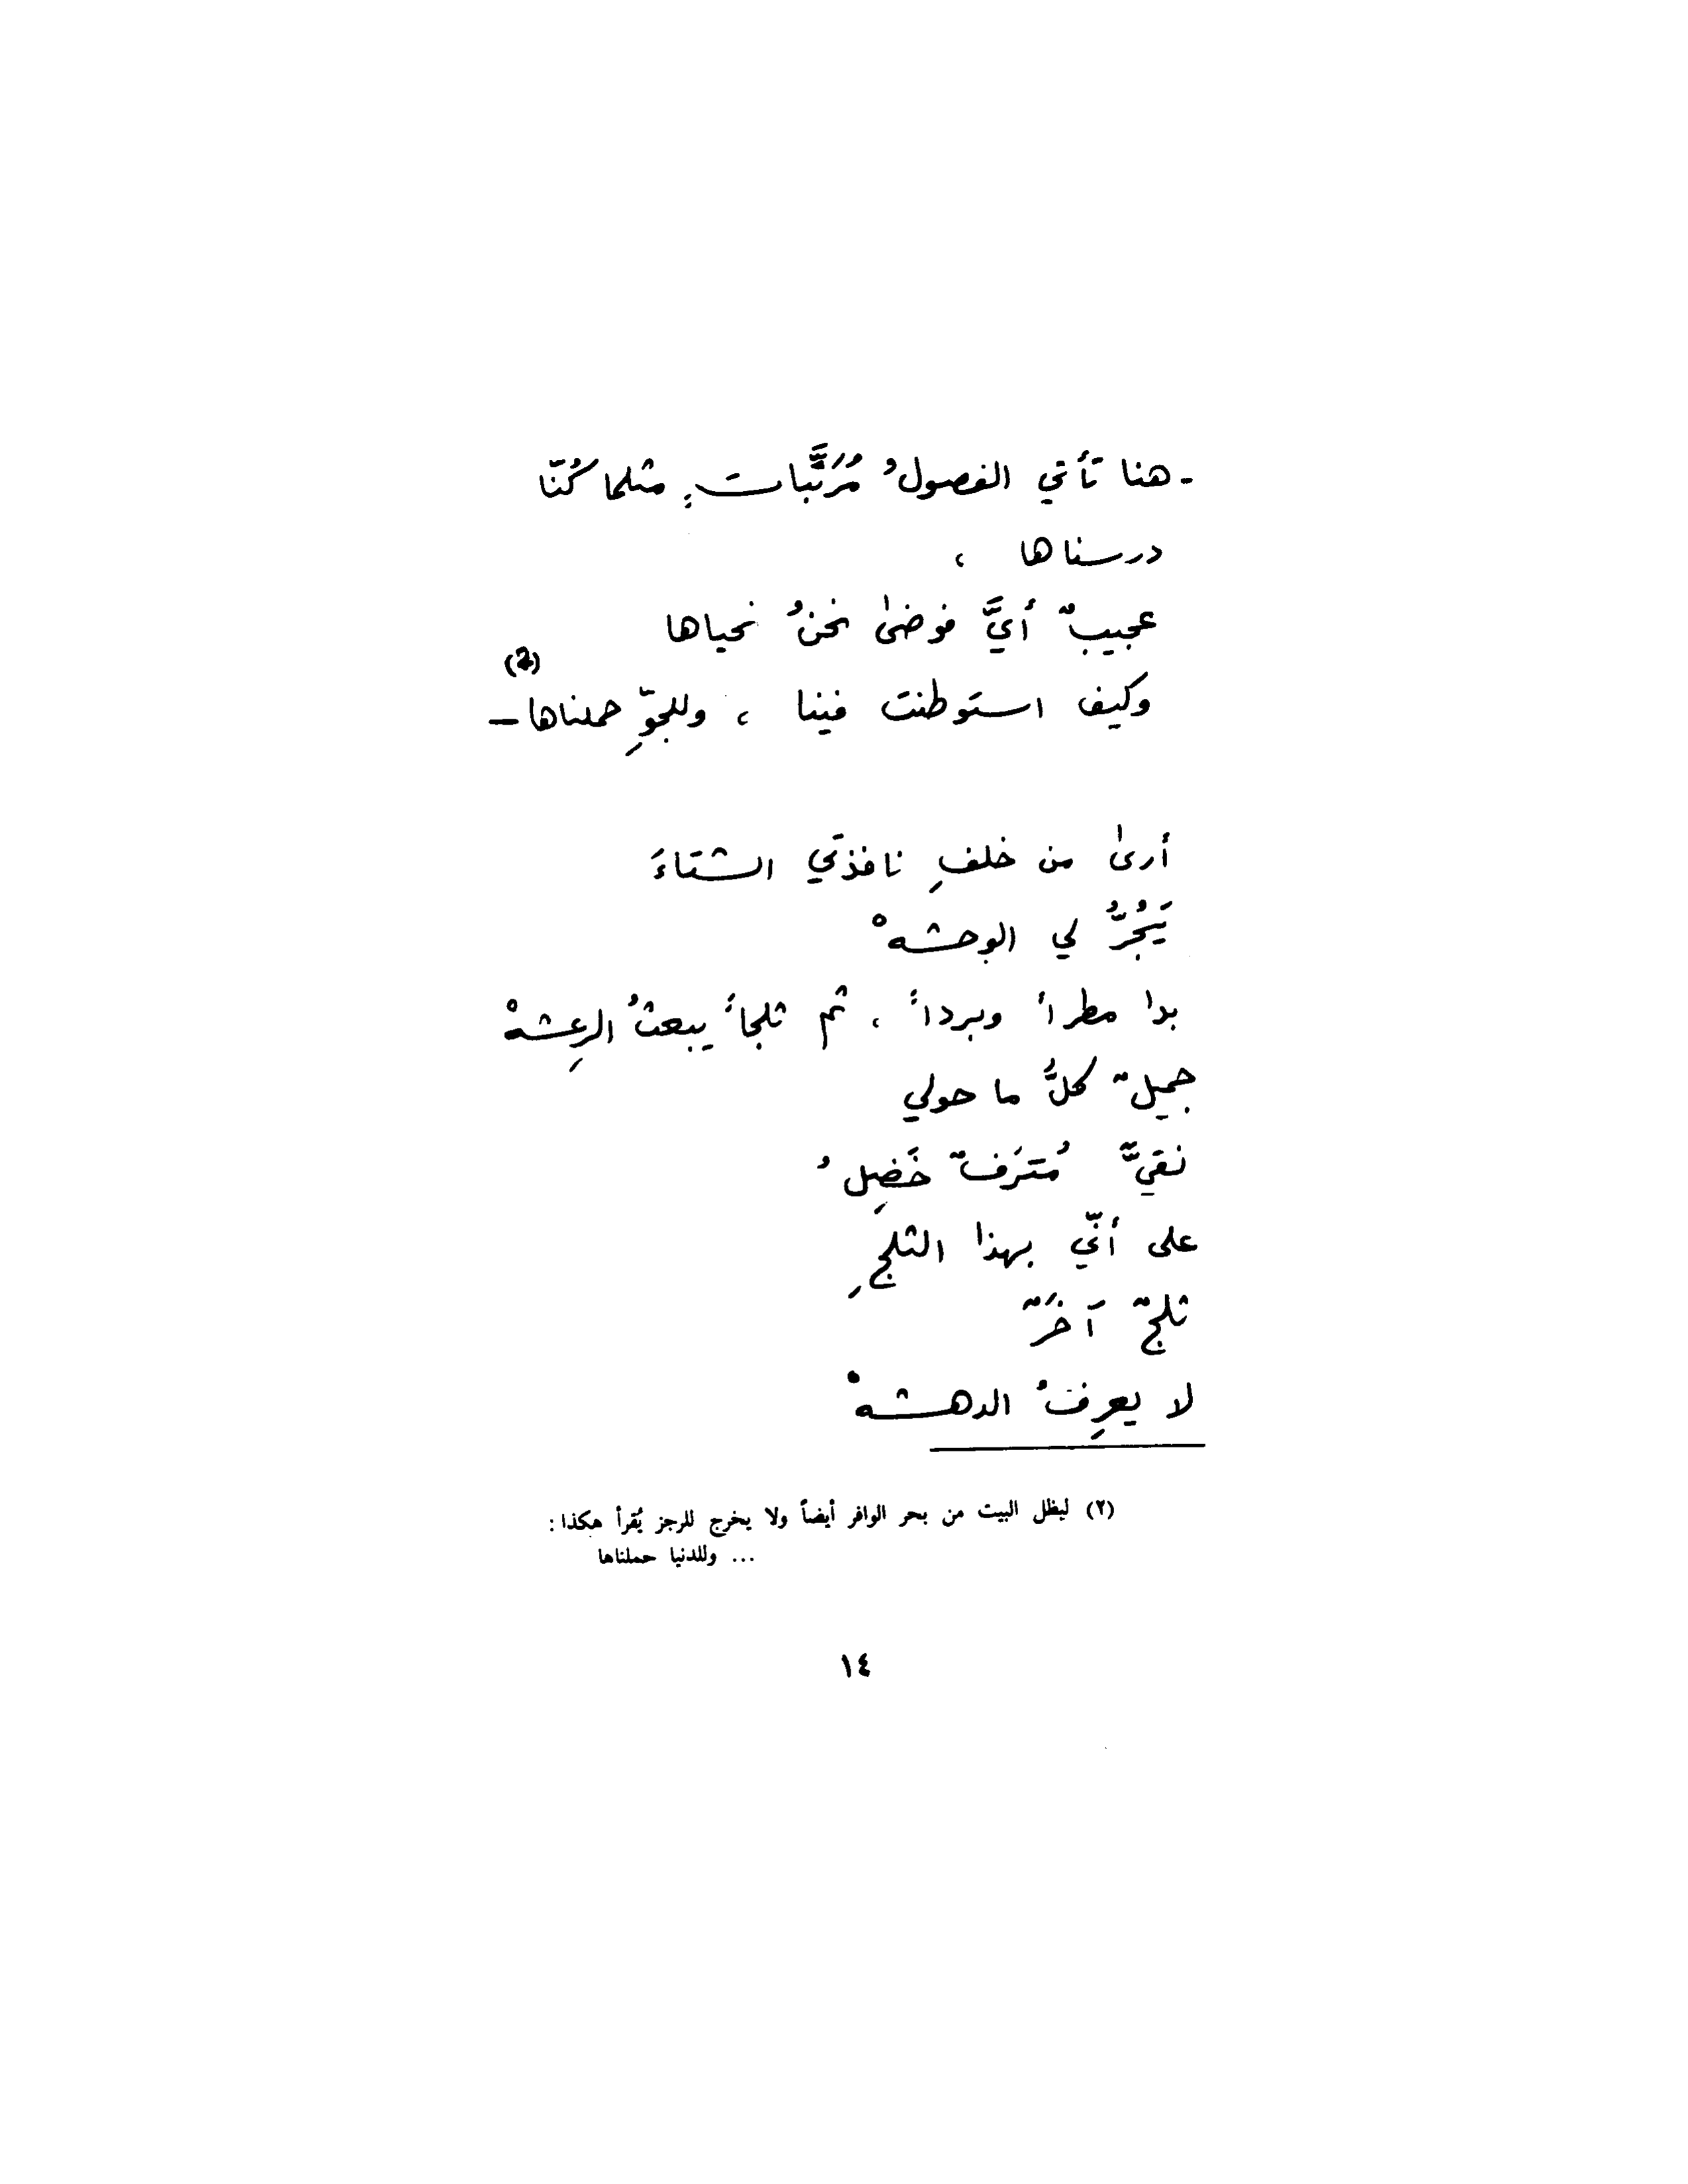 - هنا تأتي الفصولُ مُرَتَّباتٍ مثلما كُنّا
درسناها ،
عجيبٌ أيَّ فوضىٰ نحنُ نحياها
وكيف استوطنت فينا ، وللجوِّ حملناها – (2)
أرىٰ من خلفِ نافذتي الشتاءَ
يَجُرُّ لي الوحشهْ
بدا مطراً وبرداً ، ثم ثلجاً يبعثُ الرِعشهْ
جميلٌ كلُّ ما حولي
نقيٌّ مُترَفٌ خَضِلُ
على أنّي بهذا الثلجِ
ثلجٌ آخَرٌ
لا يعرِفُ الدهشهْ
(٢) ليظل البيت من بحر الوافر أيضاً ولا يخرج للرجز يُقرأ هكذا :
... وللدنيا حملناها
١٤